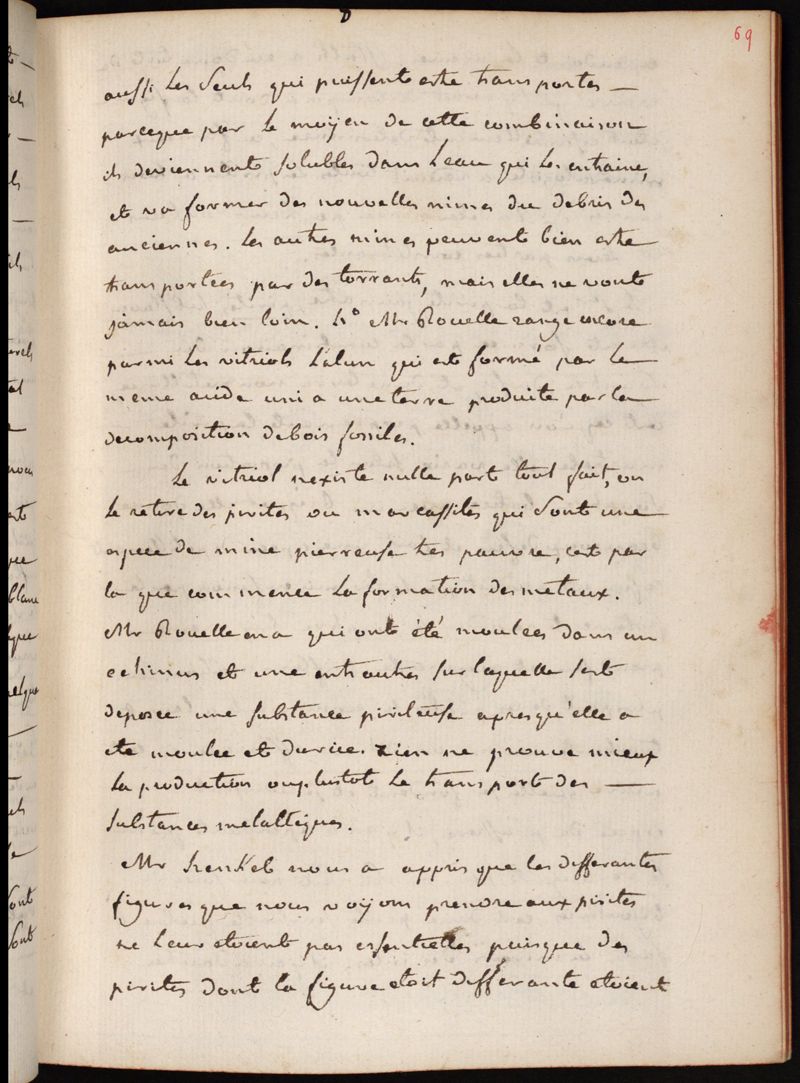 69
aussi les seuls qui puissent estre transportes —
parceque par le moÿen de cette combinaison
ils deviennent solubles dans l'eau qui les entraine,
et va former des nouvelles mines du debris des
anciennes. les autres mines peuvent bien estre
transportées par des torrants, mais elles ne vont
jámais bien loin. 4° Mr Rouelle range encore
parmi les vitriols l'alun qui est formé par le
meme acide uni a une terre produite par la
decomposition de bois fossiles.
Le vitriol n'existe nulle part tout fait, on
le retire des pirites ou marcassites qui sont une
espece de mine pierreuse tres pauvre, c'est par
la que commence la formation des metaux.
Mr Rouelle en a qui ont été moulées dans un
echinus et une entr autres sur laquelle s'est
deposee une substance piriteuse apres qu'elle a
ete moulee et durcie. rien ne prouve mieux
la production ou plustot le transport des —
substances metalliques.
Mr Henkel nous a appris que les differantes
figures que nous voÿons prendre aux pirites
ne leur etoient pas essentielles puisque des
pirites dont la figure etoit differante etoient